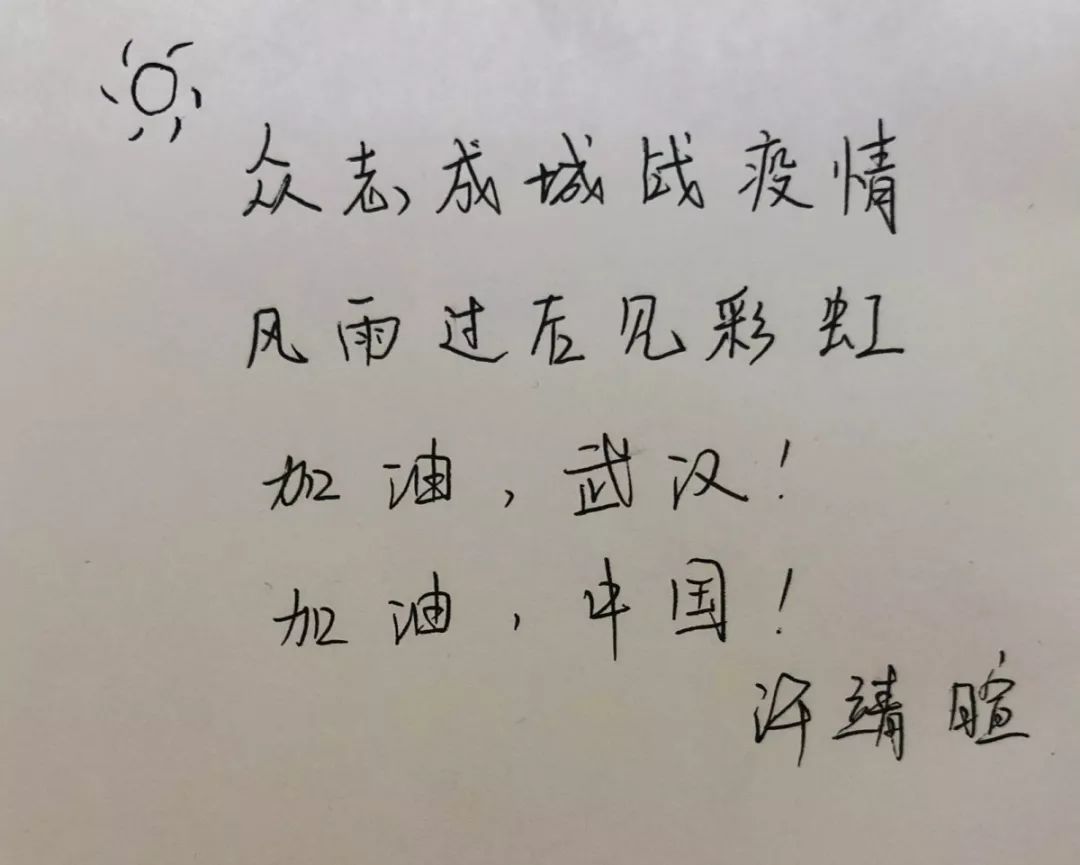 众志成城战疫情
风雨过后见彩虹
加油,武汉!
加油,中国!
许靖暄